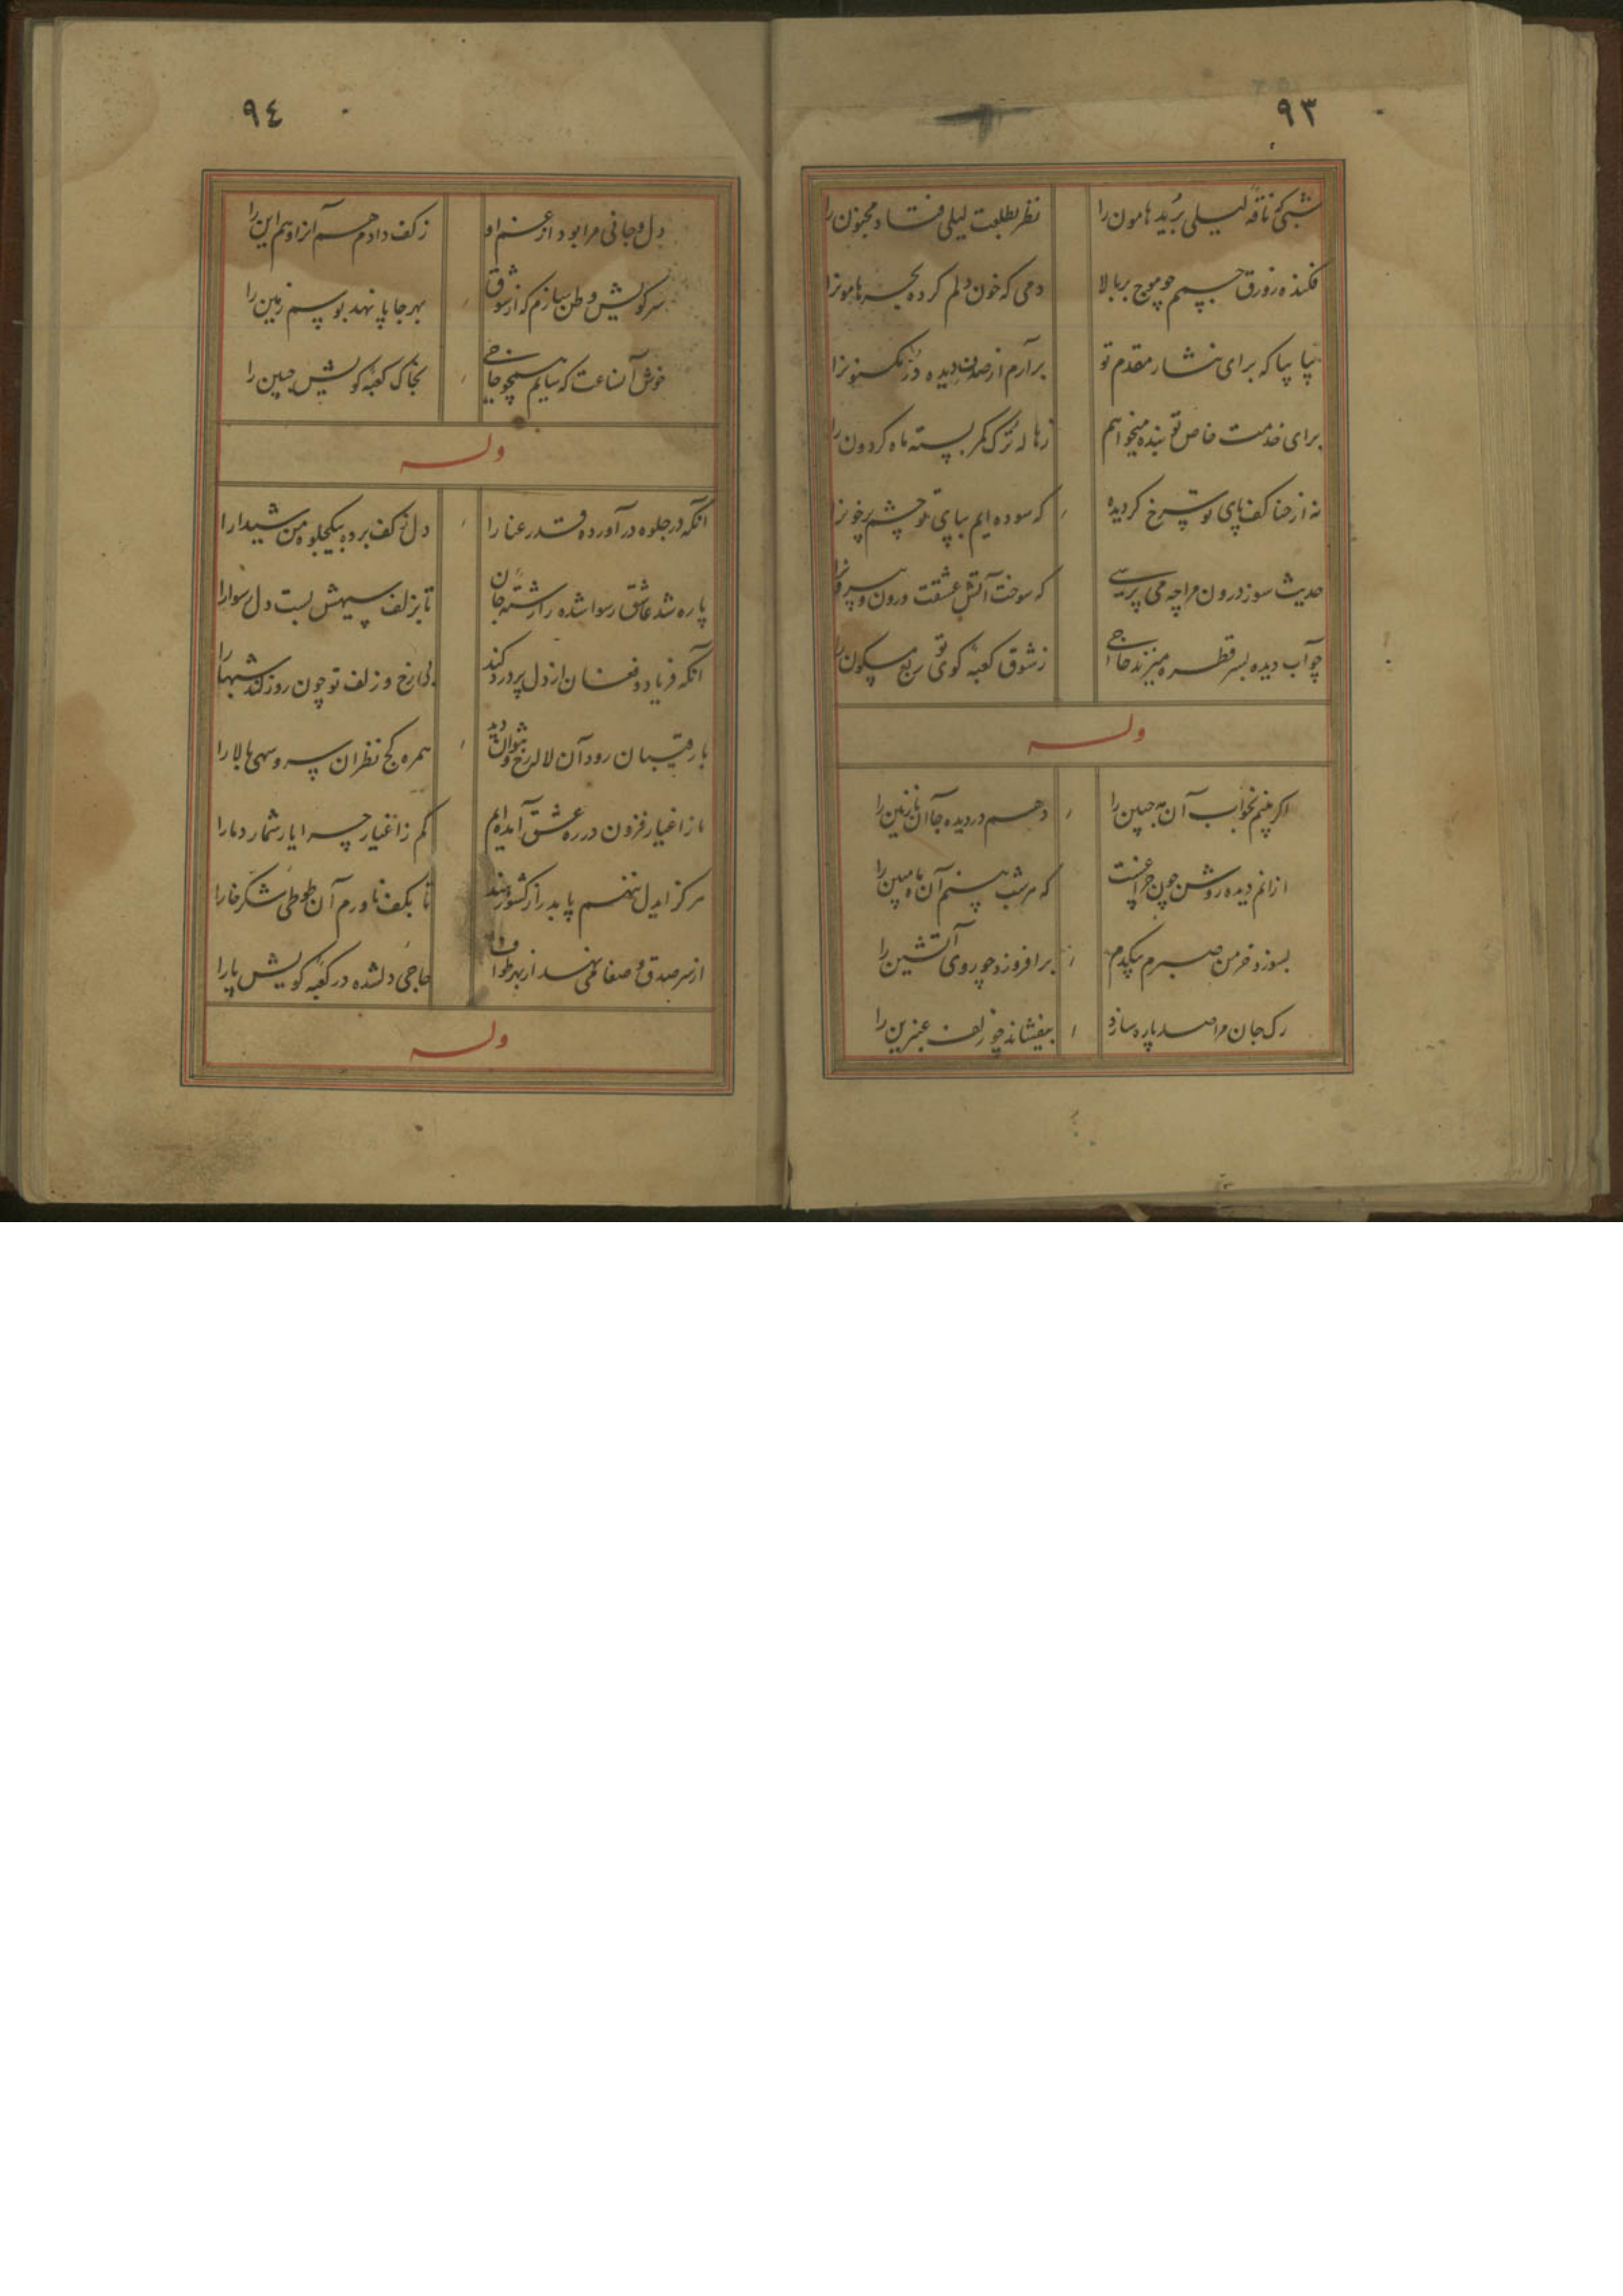 ٩٣
شبی که ناقه لیلی برید هامون را
نظر بطلعت لیلی فتاد مجنون را
فکنده زورق جسمم چو موج بر بالا
دمی که خون دلم کرده بحر هامونرا
بیا بیا که برای نثار مقدم تو
برآرم از صدف دیده در مکنونرا
برای خدمت خاص تو بنده میخواهم
زهاله ترک کمر بسته ماه کردون را
نه از حنا کف پای تو سرخ کردیده
که سوده ایم بپای تو چشم پرخونرا
حدیث سوز درون مرا چه می پرسی
که سوخت آتش عشقت درون و بیرونرا
چو آب دیده بسر قطره میزند حاجی
ز شوق کعبه کوی تو ربع مسکون را
وله
اکر بینم بخواب آن مه جبین را
دهم در دیده جا آن نازنین را
از انم دیده روشن چون چراغست
که هر شب بینم آن ماه مبین را
بسوزد خرمن صبرم بیکدم
برافروزد چو روی آتشین را
رک جان مرا صد پاره سازد
بیفشاند چو زلف عنبرین را
٩٤
دل و جانی مرا بود از غم او
ز کف دادم هم آنرا و هم این را
سر کویش وطن سازم که از شوق
بهر جا پا نهد بوسم زمین را
خوش آنساعت که سایم همچو حاجی
بخاک کعبه کویش جبین را
وله
آنکه در جلوه در آورده قد رعنا را
دل ز کف برده بیکجلوه من شیدا را
پاره شد عاشق رسوا شده را رشته جان
تا بزلف سیهش بست دل رسوا را
آنکه فریاد و فغان از دل پر درد کند
بی رخ و زلف تو چون روز کند شبها را
با رقیبان رود آن لاله رخ و نتوان دید
همره کج نظران سرو سهی بالا را
ما ز اغیار فزون در ره عشق آمده ایم
کم ز اغیار چرا یار شمارد ما را
هرکز ایدل ننهم پا بدر از کشور هند
تا بکف ناورم آن طوطی شکرخا را
از سر صدق و صفا می نهد از بهر طواف
حاجی دلشده در کعبه کویش پا را
وله